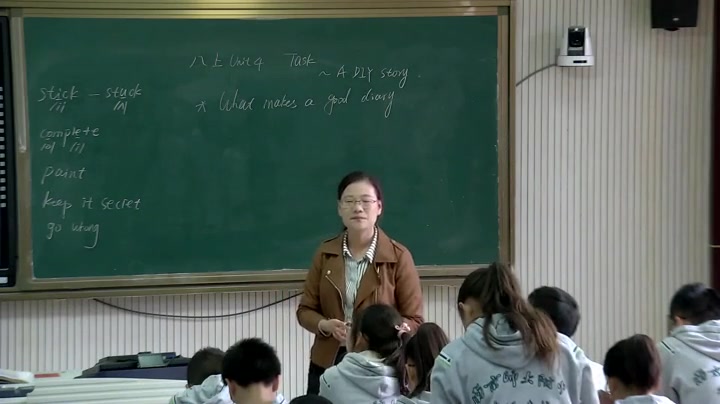 八上 Unit 4 Task
~ A DIY story.
* What makes a good diary
stick – stuck
/i/ /ʌ/
complete
/ə/ /i/
paint
keep it secret
go wrong